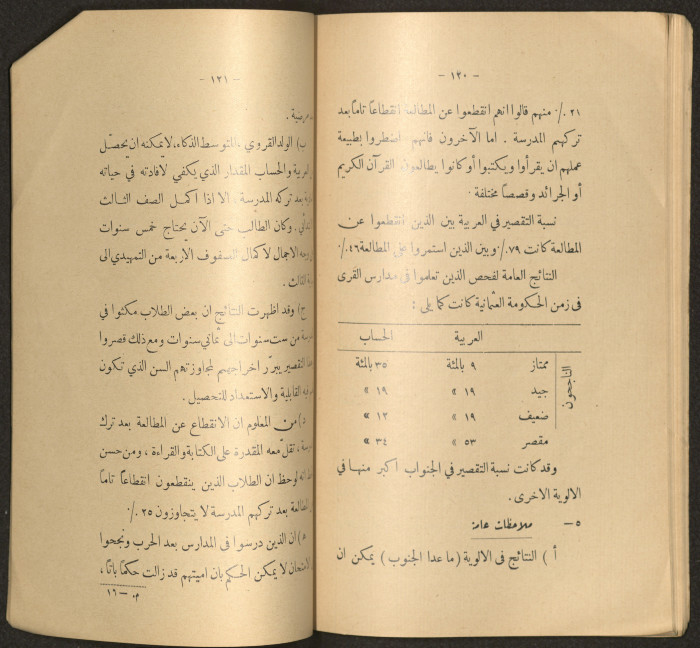 — ١٢٠ —
٢١ ٪ منهم قالوا انهم انقطعوا عن المطالعة انقطاعاً تاماً بعد
تركهم المدرسة . اما الآخرون فانهم اضطروا بطبيعة
عملهم ان يقرأوا ويكتبوا أو كانوا يطالعون القرآن الكريم
أو الجرائد وقصصاً مختلفة .
نسبة التقصير في العربية بين الذين انقطعوا عن
المطالعة كانت ٧٩٪ وبين الذين استمروا على المطالعة ٤٦٪
النتائج العامة لفحص الذين تعلموا في مدارس القرى
في زمن الحكومة العثمانية كانت كما يلي :
العربية الحساب
الناجحون
ممتاز ٩ بالمئة ٣٥ بالمئة
جيد ١٩ » ١٩ »
ضعيف ١٩ » ١٢ »
مقصر ٥٣ » ٣٤ »
وقد كانت نسبة التقصير في الجنوب اكبر منها في
الالوية الاخرى .
٥ — ملاحظات عامة
أ ) النتائج في الالوية ( ما عدا الجنوب ) يمكن ان
— ١٢١ —
مرضية .
ب) الولد القروي ، المتوسط الذكاء ، لا يمكنه ان يحصّل
العربية والحساب المقدار الذي يكفي لافادته في حياته
بعد تركه المدرسة ، الا اذا اكمل الصف الثالث
وكان الطالب حتى الآن يحتاج خمس سنوات
الاجمال لاكمال الصفوف الاربعة من التمهيدي الى
الثالث .
ج) وقد اظهرت النتائج ان بعض الطلاب مكثوا في
من ست سنوات الى ثماني سنوات ومع ذلك قصروا
التقصير يبرّر اخراجهم لمجاوزتهم السن الذي تكون
القابلية والاستعداد للتحصيل .
د) من المعلوم ان الانقطاع عن المطالعة بعد ترك
، تقلّ معه المقدرة على الكتابة والقراءة ، ومن حسن
انه لوحظ ان الطلاب الذين ينقطعون انقطاعاً تاماً
المطالعة بعد تركهم المدرسة لا يتجاوزون ٢٥ ٪
ه) ان الذين درسوا في المدارس بعد الحرب ونجحوا
الامتحان لا يمكن الحكم بان اميتهم قد زالت حكماً باتاً ،
م . — ١٦